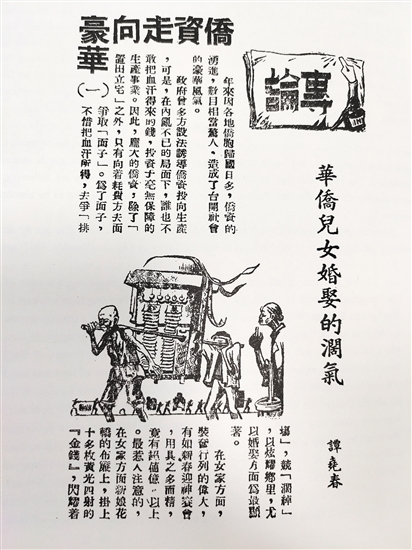 專論
華僑兒女婚娶的濶氣
譚堯春
僑資走向豪
華
(一)
年來因各地僑胞歸國日多，僑資的
湧進，數目相當驚人。造成了台開社會
的豪華風氣。
政府曾多方設法誘導僑資投向生產
，可是，在內亂不已的局面下，誰也不
敢把血汗得來的錢，投資于毫無保障的
生產事業。因此，龐大的僑資，除了「
置田立宅」之外，只有向着耗費方去面
爭取「面子」。爲了面子，
不惜把血汗所得，去爭「排
塲」，競「濶綽」
，以炫耀鄉里，尤
以婚娶方面爲最顯
著。
在女家方面，
裝奩行列的偉大，
有如新春迎神賽會
，用具之多而精，
竟有億以上
。最惹人注意的，
在女家方面新娘花
轎的布簾上，掛上
十多枚黃光四射的
『金錢』，閃耀着